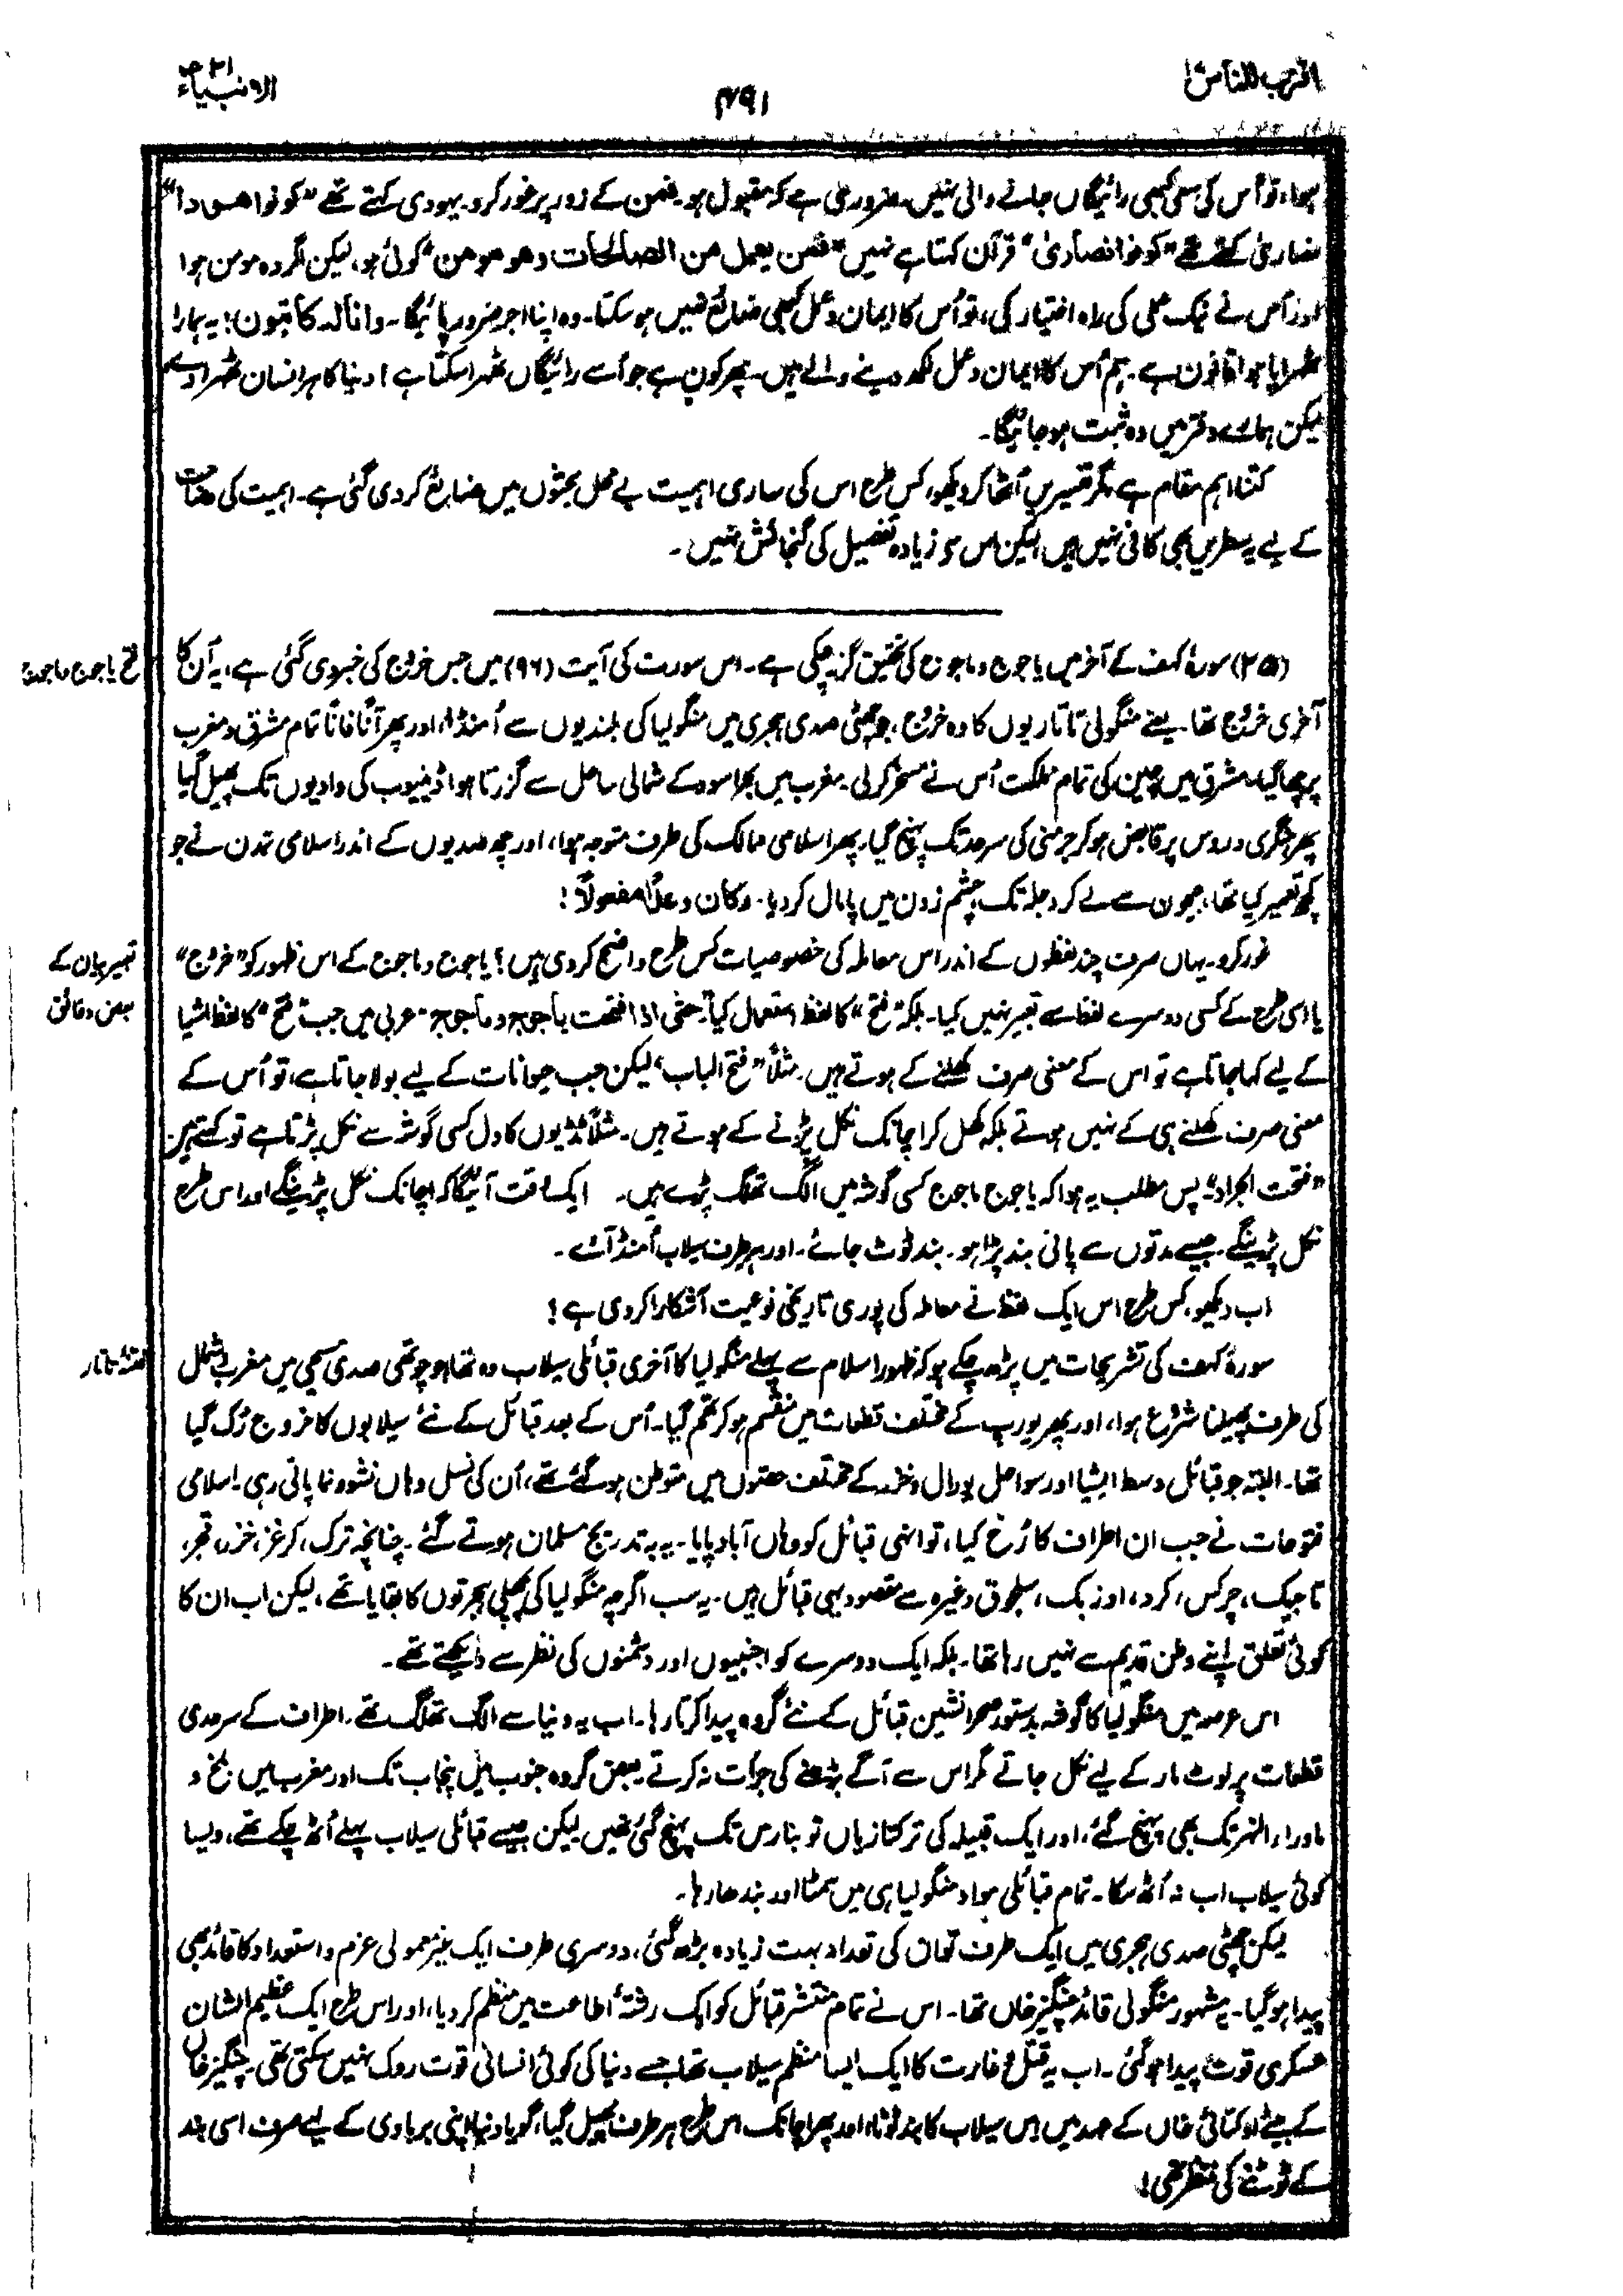 اقترب للناس ۱۷
۴۹۱
الانبیاء ۲۱
ہوا، تو اُس کی سعی کبھی رائیگاں جانے والی نہیں، ضروری ہے کہ مقبول ہو۔ فمن کے زور پر غور کرو۔ یہودی کہتے تھے "کونوا ھودا"
نصاریٰ کہتے تھے "کونوا نصاریٰ" قرآن کہتا ہے نہیں "فمن یعمل من الصالحات وھو مومن" کوئی ہو، لیکن اگر وہ مومن ہوا
اور اُس نے نیک عملی کی راہ اختیار کی، تو اُس کا ایمان و عمل کبھی ضائع نہیں ہو سکتا۔ وہ اپنا اجر ضرور پائیگا۔ وانا لہ کاتبون: یہ ہمارا
ٹھہرایا ہوا قانون ہے۔ ہم اُس کا ایمان و عمل لکھ دینے والے ہیں۔ پھر کون ہے جو اُسے رائیگاں ٹھہرا سکتا ہے؟ دنیا کا ہر انسان ٹھہرا دے
لیکن ہمارے دفتر میں وہ ثبت ہو جائیگا۔
کتنا اہم مقام ہے مگر تفسیریں اُٹھا کر دیکھو، کس طرح اس کی ساری اہمیت بے محل بحثوں میں ضایع کر دی گئی ہے۔ اہمیت کی وضاحت
کے لیے یہ سطریں بھی کافی نہیں ہیں لیکن اس سے زیادہ تفصیل کی گنجائش نہیں۔
فتح یاجوج ماجوج
(۲۵) سورۂ کہف کے آخر میں یاجوج و ماجوج کی تحقیق گزر چکی ہے۔ اس سورت کی آیت (۹۶) میں جس خروج کی خبر دی گئی ہے، یہ اُن کا
آخری خروج تھا۔ یعنے منگولی تاتاریوں کا وہ خروج، جو چھٹی صدی ہجری میں منگولیا کی بلندیوں سے اُمنڈا، اور پھر آناً فاناً تمام مشرق و مغرب
پر چھا گیا۔ مشرق میں چین کی تمام مملکت اُس نے مسخر کر لی۔ مغرب میں بحر اسود کے شمالی ساحل سے گزرتا ہوا ڈینیوب کی وادیوں تک پھیل گیا
پھر ہنگری و روس پر قابض ہو کر جرمنی کی سرحد تک پہنچ گیا۔ پھر اسلامی ممالک کی طرف متوجہ ہوا، اور چھ صدیوں کے اندر اسلامی تمدن نے جو
کچھ تعمیر کیا تھا، جیحون سے لے کر دجلہ تک، چشم زدن میں پامال کر دیا۔ وکان وعداً مفعولاً!
تعبیر بیان کے
بعض دقائق
غور کرو۔ یہاں صرف چند لفظوں کے اندر اس معاملہ کی خصوصیات کس طرح واضح کر دی ہیں؟ یاجوج و ماجوج کے اس ظہور کو "خروج"
یا اسی طرح کے کسی دوسرے لفظ سے تعبیر نہیں کیا۔ بلکہ "فتح" کا لفظ استعمال کیا "حتٰی اذا فتحت یاجوج وماجوج"۔ عربی میں جب "فتح" کا لفظ اشیا
کے لیے کہا جاتا ہے تو اس کے معنی صرف کھلنے کے ہوتے ہیں۔ مثلاً "فتح الباب" لیکن جب حیوانات کے لیے بولا جاتا ہے، تو اُس کے
معنی صرف کھلنے ہی کے نہیں ہوتے بلکہ کھل کر اچانک نکل پڑنے کے ہوتے ہیں۔ مثلاً ٹڈیوں کا دل کسی گوشہ سے نکل پڑتا ہے تو کہتے ہیں
"فتحت الجراد"۔ پس مطلب یہ ہوا کہ یاجوج ماجوج کسی گوشہ میں الگ تھلگ پڑے ہیں۔ ایک وقت آئیگا کہ اچانک نکل پڑینگے اور اس طرح
نکل پڑینگے۔ جیسے مدتوں سے پانی بند پڑا ہو۔ بند ٹوٹ جائے۔ اور ہر طرف سیلاب اُمنڈ آئے۔
اب دیکھو، کس طرح اس ایک لفظ نے معاملہ کی پوری تاریخی نوعیت آشکارا کر دی ہے!
فتنۂ تاتار
سورۂ کہف کی تشریحات میں پڑھ چکے ہو کہ ظہور اسلام سے پہلے منگولیا کا آخری قبائلی سیلاب وہ تھا جو چوتھی صدی مسیحی میں مغرب و شمال
کی طرف پھیلنا شروع ہوا، اور پھر یورپ کے مختلف قطعات میں منقسم ہو کر تھم گیا۔ اُس کے بعد قبائل کے نئے سیلابوں کا خروج رُک گیا
تھا۔ البتہ جو قبائل وسط ایشیا اور سواحل یورال و خزر کے مختلف حصوں میں متوطن ہو گئے تھے، اُن کی نسل وہاں نشو و نما پاتی رہی۔ اسلامی
فتوحات نے جب ان اطراف کا رُخ کیا، تو انہی قبائل کو وہاں آباد پایا۔ یہ بہ تدریج مسلمان ہوتے گئے۔ چنانچہ ترک، کرغز، خزر، قجر،
تاجیک، چرکس، کرد، اوزبک، سلجوق وغیرہ سے مقصود یہی قبائل ہیں۔ یہ سب اگرچہ منگولیا کی پچھلی ہجرتوں کا بقایا تھے، لیکن اب ان کا
کوئی تعلق اپنے وطن قدیم سے نہیں رہا تھا۔ بلکہ ایک دوسرے کو اجنبیوں اور دشمنوں کی نظر سے دیکھتے تھے۔
اس عرصہ میں منگولیا کا گوشہ بدستور صحرا نشین قبائل کے نئے گروہ پیدا کرتا رہا۔ اب یہ دنیا سے الگ تھلگ تھے۔ اطراف کے سرحدی
قطعات پر لوٹ مار کے لیے نکل جاتے مگر اس سے آگے بڑھنے کی جرات نہ کرتے۔ بعض گروہ جنوب میں پنجاب تک اور مغرب میں بلخ و
ماوراء النہر تک بھی پہنچ گئے، اور ایک قبیلہ کی ترکتازیاں تو بنارس تک پہنچ گئی تھیں لیکن جیسے قبائلی سیلاب پہلے اُٹھ چکے تھے، ویسا
کوئی سیلاب اب نہ اُٹھ سکا۔ تمام قبائلی مواد منگولیا ہی میں سمٹا اور بندھا رہا۔
لیکن چھٹی صدی ہجری میں ایک طرف تو ان کی تعداد بہت زیادہ بڑھ گئی، دوسری طرف ایک غیر معمولی عزم و استعداد کا قائد بھی
پیدا ہو گیا۔ یہ مشہور منگولی قائد چنگیز خاں تھا۔ اس نے تمام منتشر قبائل کو ایک رشتۂ اطاعت میں منظم کر دیا، اور اس طرح ایک عظیم الشان
عسکری قوت پیدا ہو گئی۔ اب یہ قتل و غارت کا ایک ایسا منظم سیلاب تھا جسے دنیا کی کوئی انسانی قوت روک نہیں سکتی تھی۔ چنگیز خاں
کے بیٹے اوکتائی خاں کے عہد میں اس سیلاب کا بند ٹوٹا، اور پھر اچانک اس طرح ہر طرف پھیل گیا، گویا دنیا اپنی بربادی کے لیے صرف اسی بند
کے ٹوٹنے کی منتظر تھی!